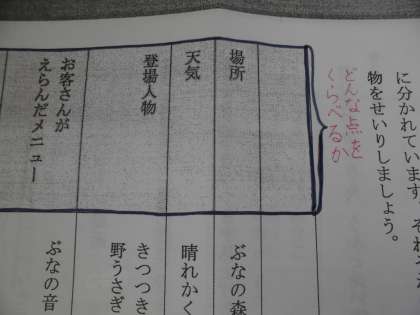 に分かれています。それぞ
物をせいりしましょう。
どんな点を
くらべるか
場所
天気
登場人物
お客さんが
えらんだメニュー
ぶなの森
晴れかく
きつつき
野うさぎ
ぶなの音